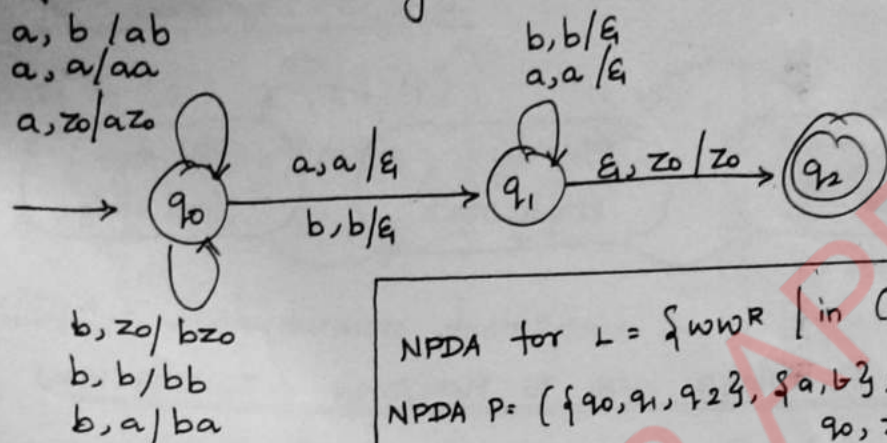 a, b / ab
a, a/aa
a, z0/az0
b, b/ε
a, a/ε
a, a/ε
b, b/ε
ε, z0/z0
q0
q1
q2
b, z0/bz0
b, b/bb
b, a/ba
NPDA for L = {wwR | in
NPDA P= ({q0, q1, q2}, {a, b},
q0,